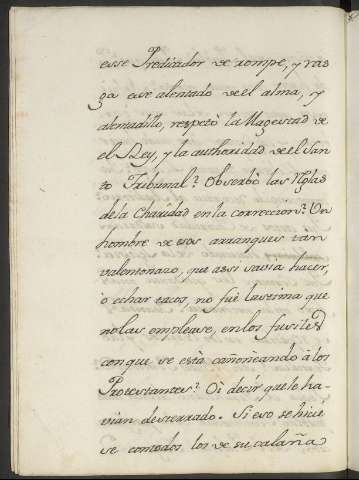 esse Predicador de rompe, y ras
ga esse alentado del alma, y
alentadillo, respetò la Magestad de
el Rey, y la authoridad del San
to Tribunal? Observò las Reglas
dela Charidad en la correccion? Un
hombre de esos arranques tan
valentonazo, que assi savia hacer,
ò echar tacos, no fuè lastima que
nolas emplease, en los fusiles
con que se està cañoneando à los
Protestantes? Oì decir que le ha-
vian desterrado. Si eso se hicie
se con todos los de su calaña